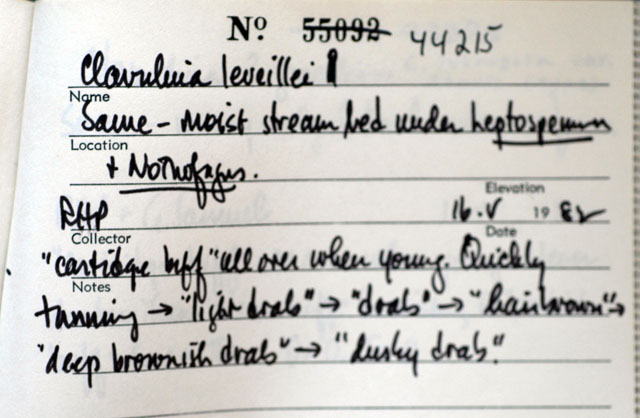 Nº 55092 44215
Clavulinia leveillei
Name
Same - moist stream bed under Leptospermum
Location
+ Nothofagus.
Elevation
RHP 16.V 1982
Collector Date
"cartidge buff" all over when young. Quickly
Notes
tanning → "light drab" → "drab" → "hairbrown" →
"deep brownish drab" → "dusky drab".